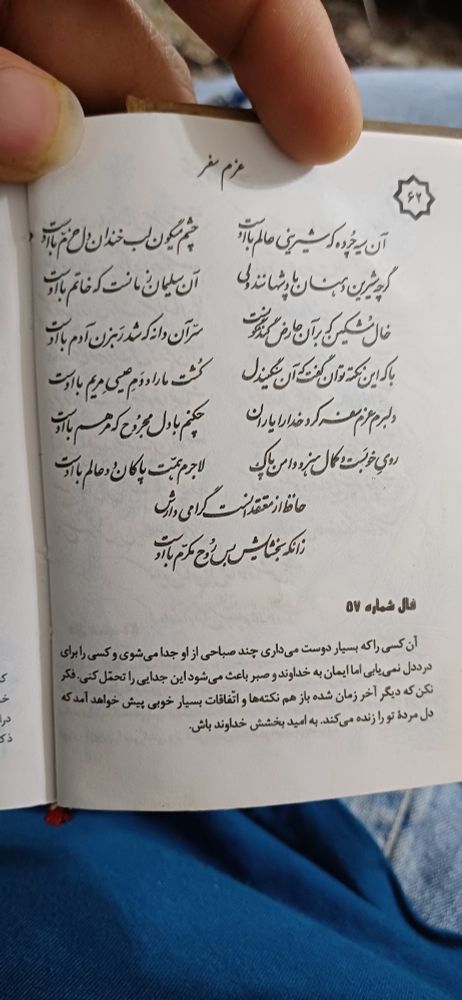 عزم سفر
۶۲
آن سیه‌چرده که شیرینی عالم با اوست چشم میگون لب خندان دل خرّم با اوست
گرچه شیرین دهنان پادشهانند ولی آن سلیمان زمانست که خاتم با اوست
خال مشکین که بر آن عارض گندمگونست سرّ آن دانه که شد رهزن آدم با اوست
با که این نکته توان گفت که آن سنگیندل کشت ما را و دم عیسی مریم با اوست
دلبرم عزم سفر کرد خدا را یاران چکنم با دل مجروح که مرهم با اوست
روی خوبست و کمال هنر و دامن پاک لاجرم همّت پاکان دو عالم با اوست
حافظ از معتقدانست گرامی دارش
زانکه بخشایش بس روح مکرّم با اوست
فال شماره ۵۷
آن کسی را که بسیار دوست می‌داری چند صباحی از او جدا می‌شوی و کسی را برای
درددل نمی‌یابی اما ایمان به خداوند و صبر باعث می‌شود این جدایی را تحمّل کنی. فکر
نکن که دیگر آخر زمان شده باز هم نکته‌ها و اتّفاقات بسیار خوبی پیش خواهد آمد که
دل مردهٔ تو را زنده می‌کند. به امید بخشش خداوند باش.